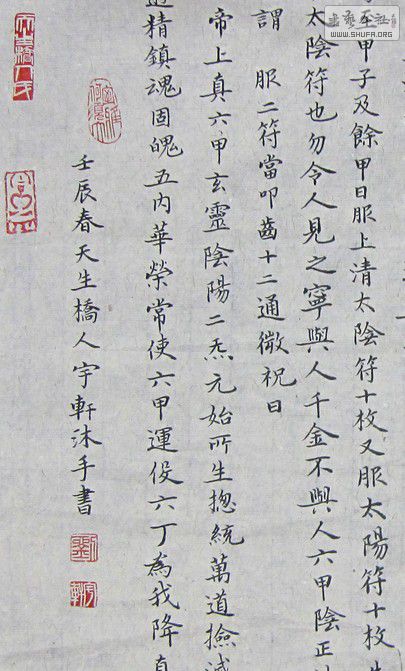 甲子及餘甲日服上清太陰符十枚又服太陽符十枚
太陰符也勿令人見之寧與人千金不與人六甲陰正
謂 服二符當叩齒十二通微祝曰
帝上真六甲玄靈陰陽二炁元始所生揔統萬道撿
精鎮魂固魄五內華榮常使六甲運役六丁為我降真
壬辰春天生橋人宇軒沐手書
劉
宇軒
WWW.SHUFA.ORG